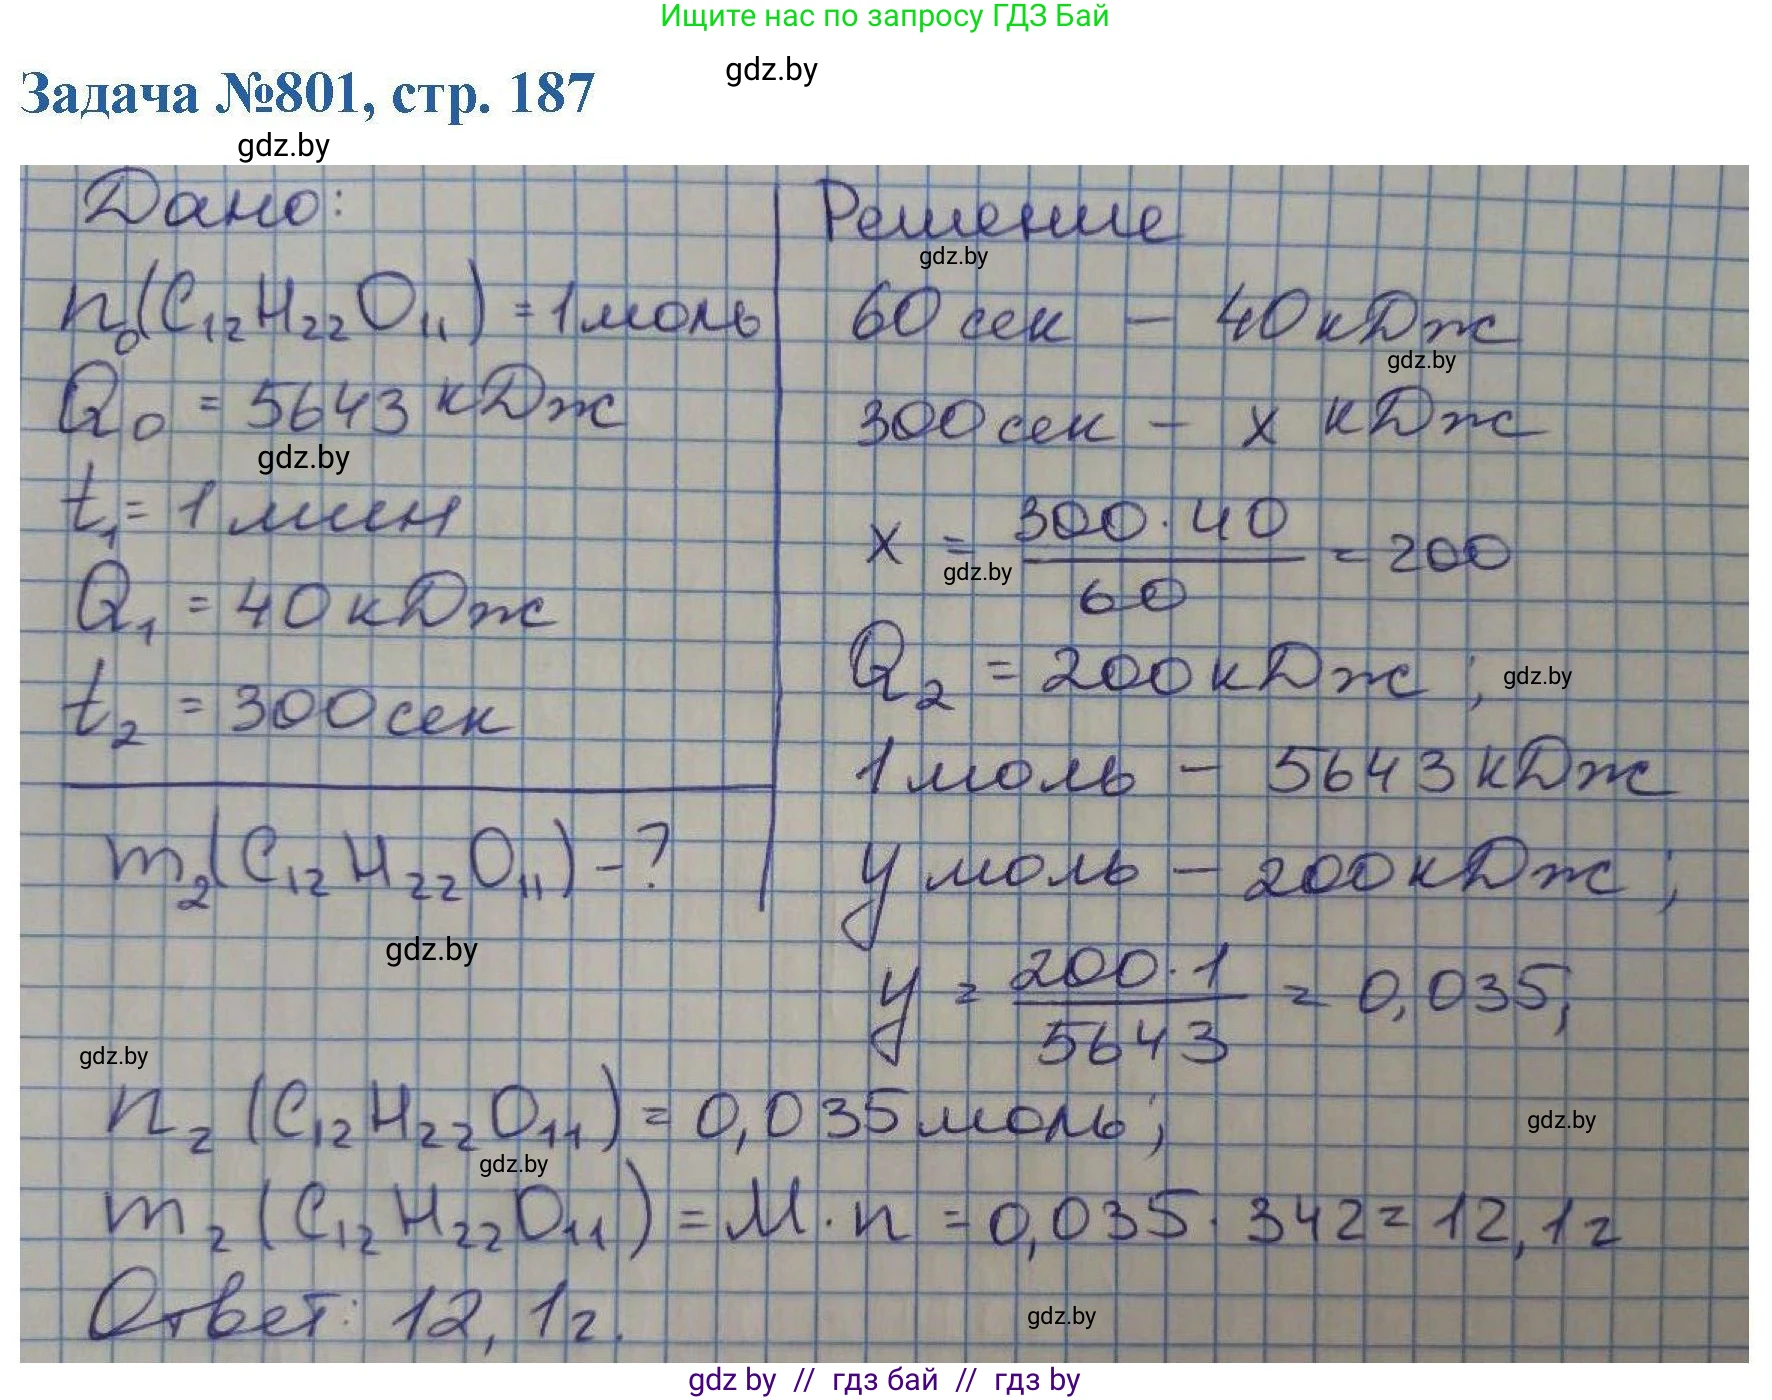 Ищите нас по запросу ГДЗ Бай
gdz.by
Задача №801, стр. 187
gdz.by
Дано:
n₀(C₁₂H₂₂O₁₁) = 1 моль
Q₀ = 5643 кДж
gdz.by
t₁ = 1 мин
Q₁ = 40 кДж
t₂ = 300 сек
m₂(C₁₂H₂₂O₁₁) - ?
gdz.by
Решение
gdz.by
60 сек – 40 кДж
gdz.by
300 сек – x кДж
x = 300 · 40 / 60 = 200
gdz.by
Q₂ = 200 кДж ;
gdz.by
1 моль – 5643 кДж
y моль – 200 кДж ;
y = 200 · 1 / 5643 = 0,035;
gdz.by
n₂ (C₁₂H₂₂O₁₁) = 0,035 моль;
gdz.by
gdz.by
m₂ (C₁₂H₂₂O₁₁) = M · n = 0,035 · 342 = 12,1 г
Ответ: 12,1 г.
gdz.by
gdz by // гдз бай // гдз by